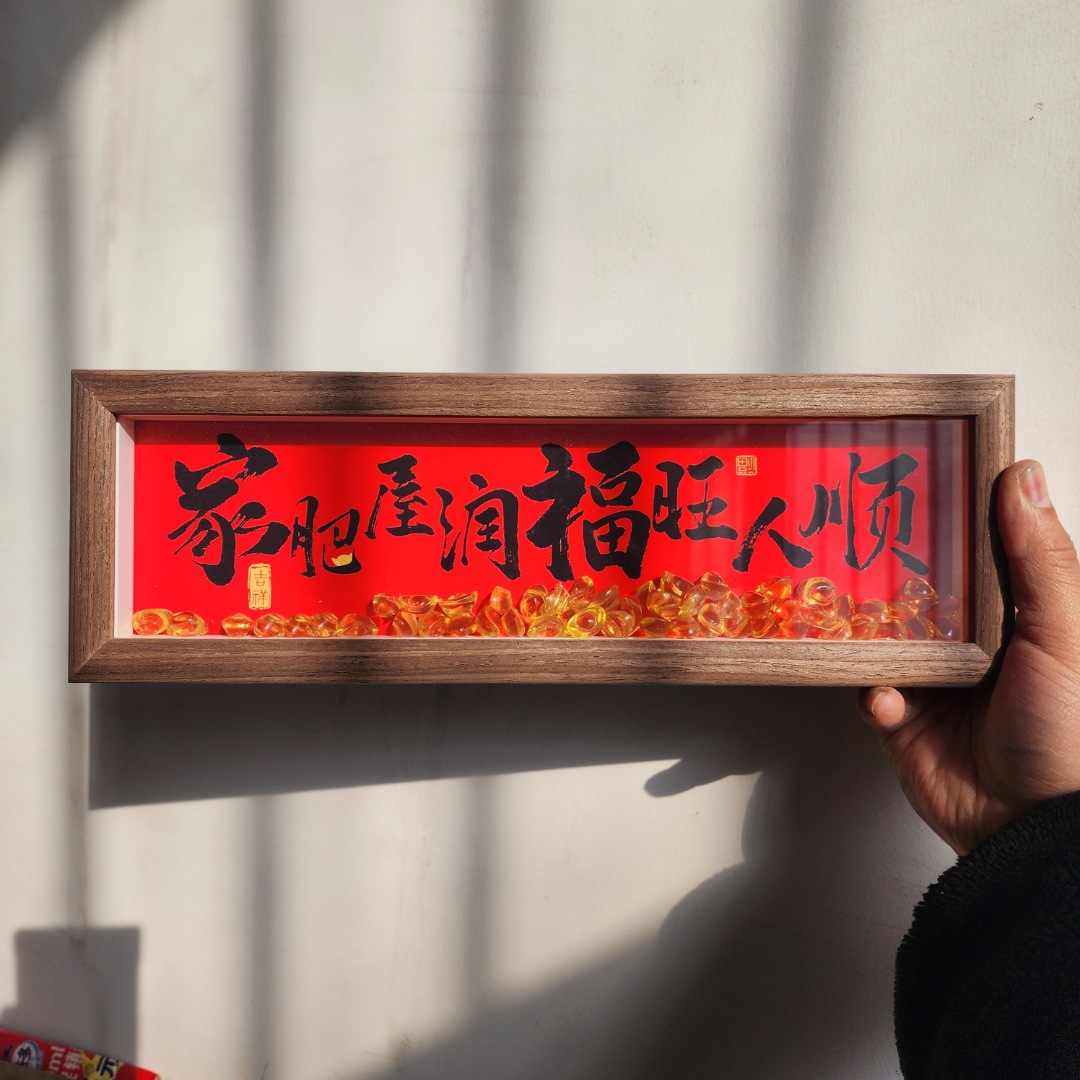 家肥屋润福旺人顺
吉祥